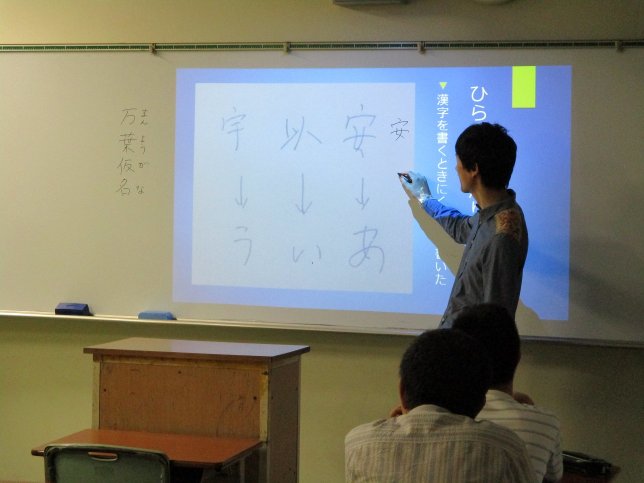 ひら
▼漢字を書くときに いた
安
安→あ
以→い
宇→う
万葉仮名
まんようがな